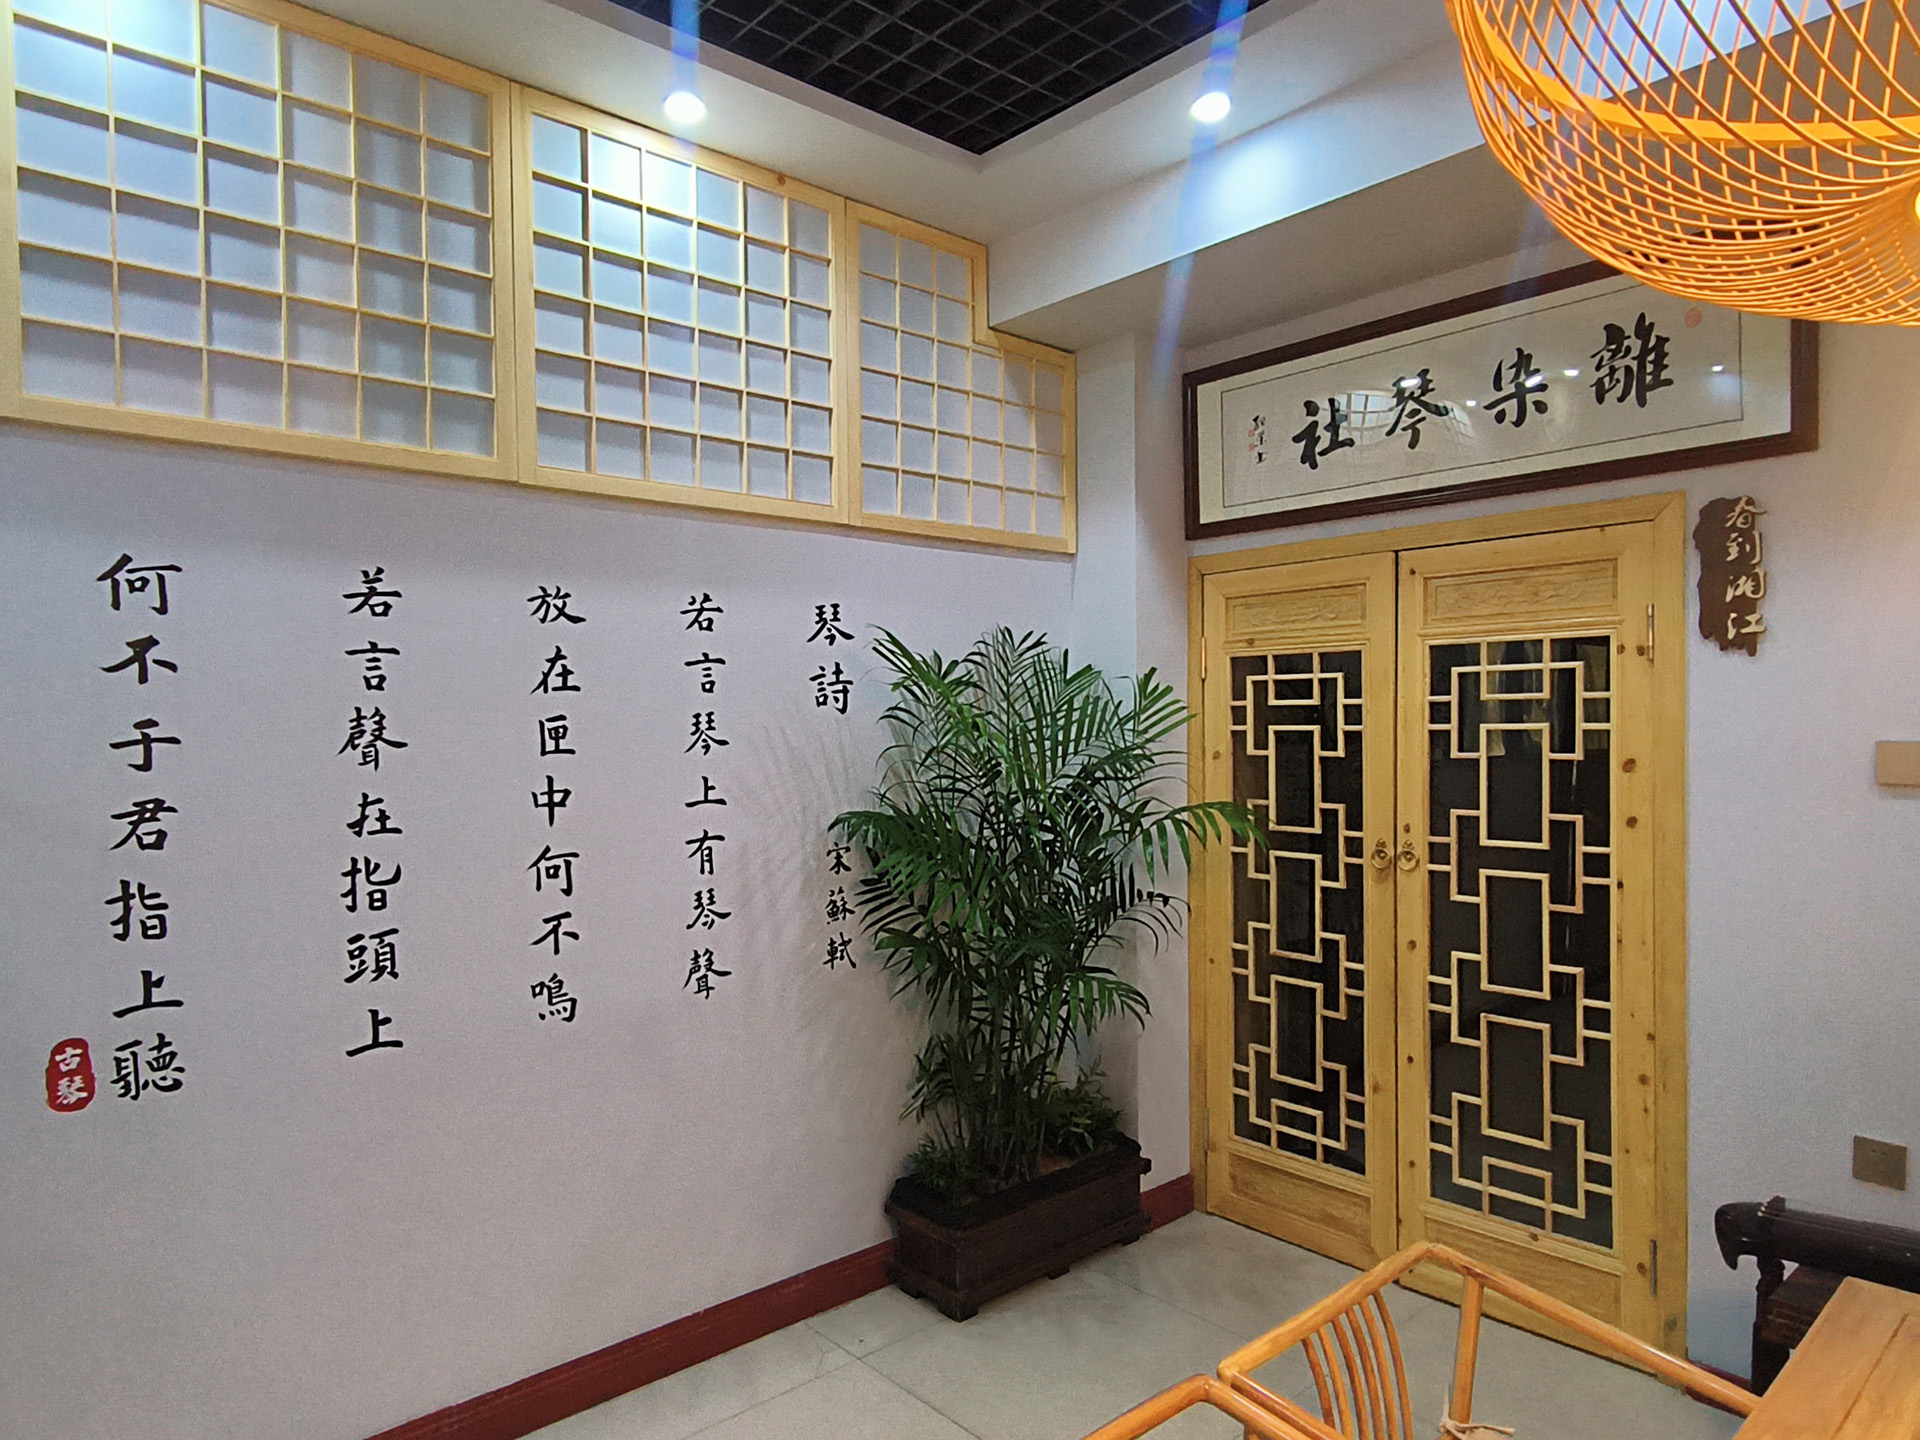 琴詩
宋蘇軾
若言琴上有琴聲
放在匣中何不鳴
若言聲在指頭上
何不于君指上聽
古琴
離染琴社